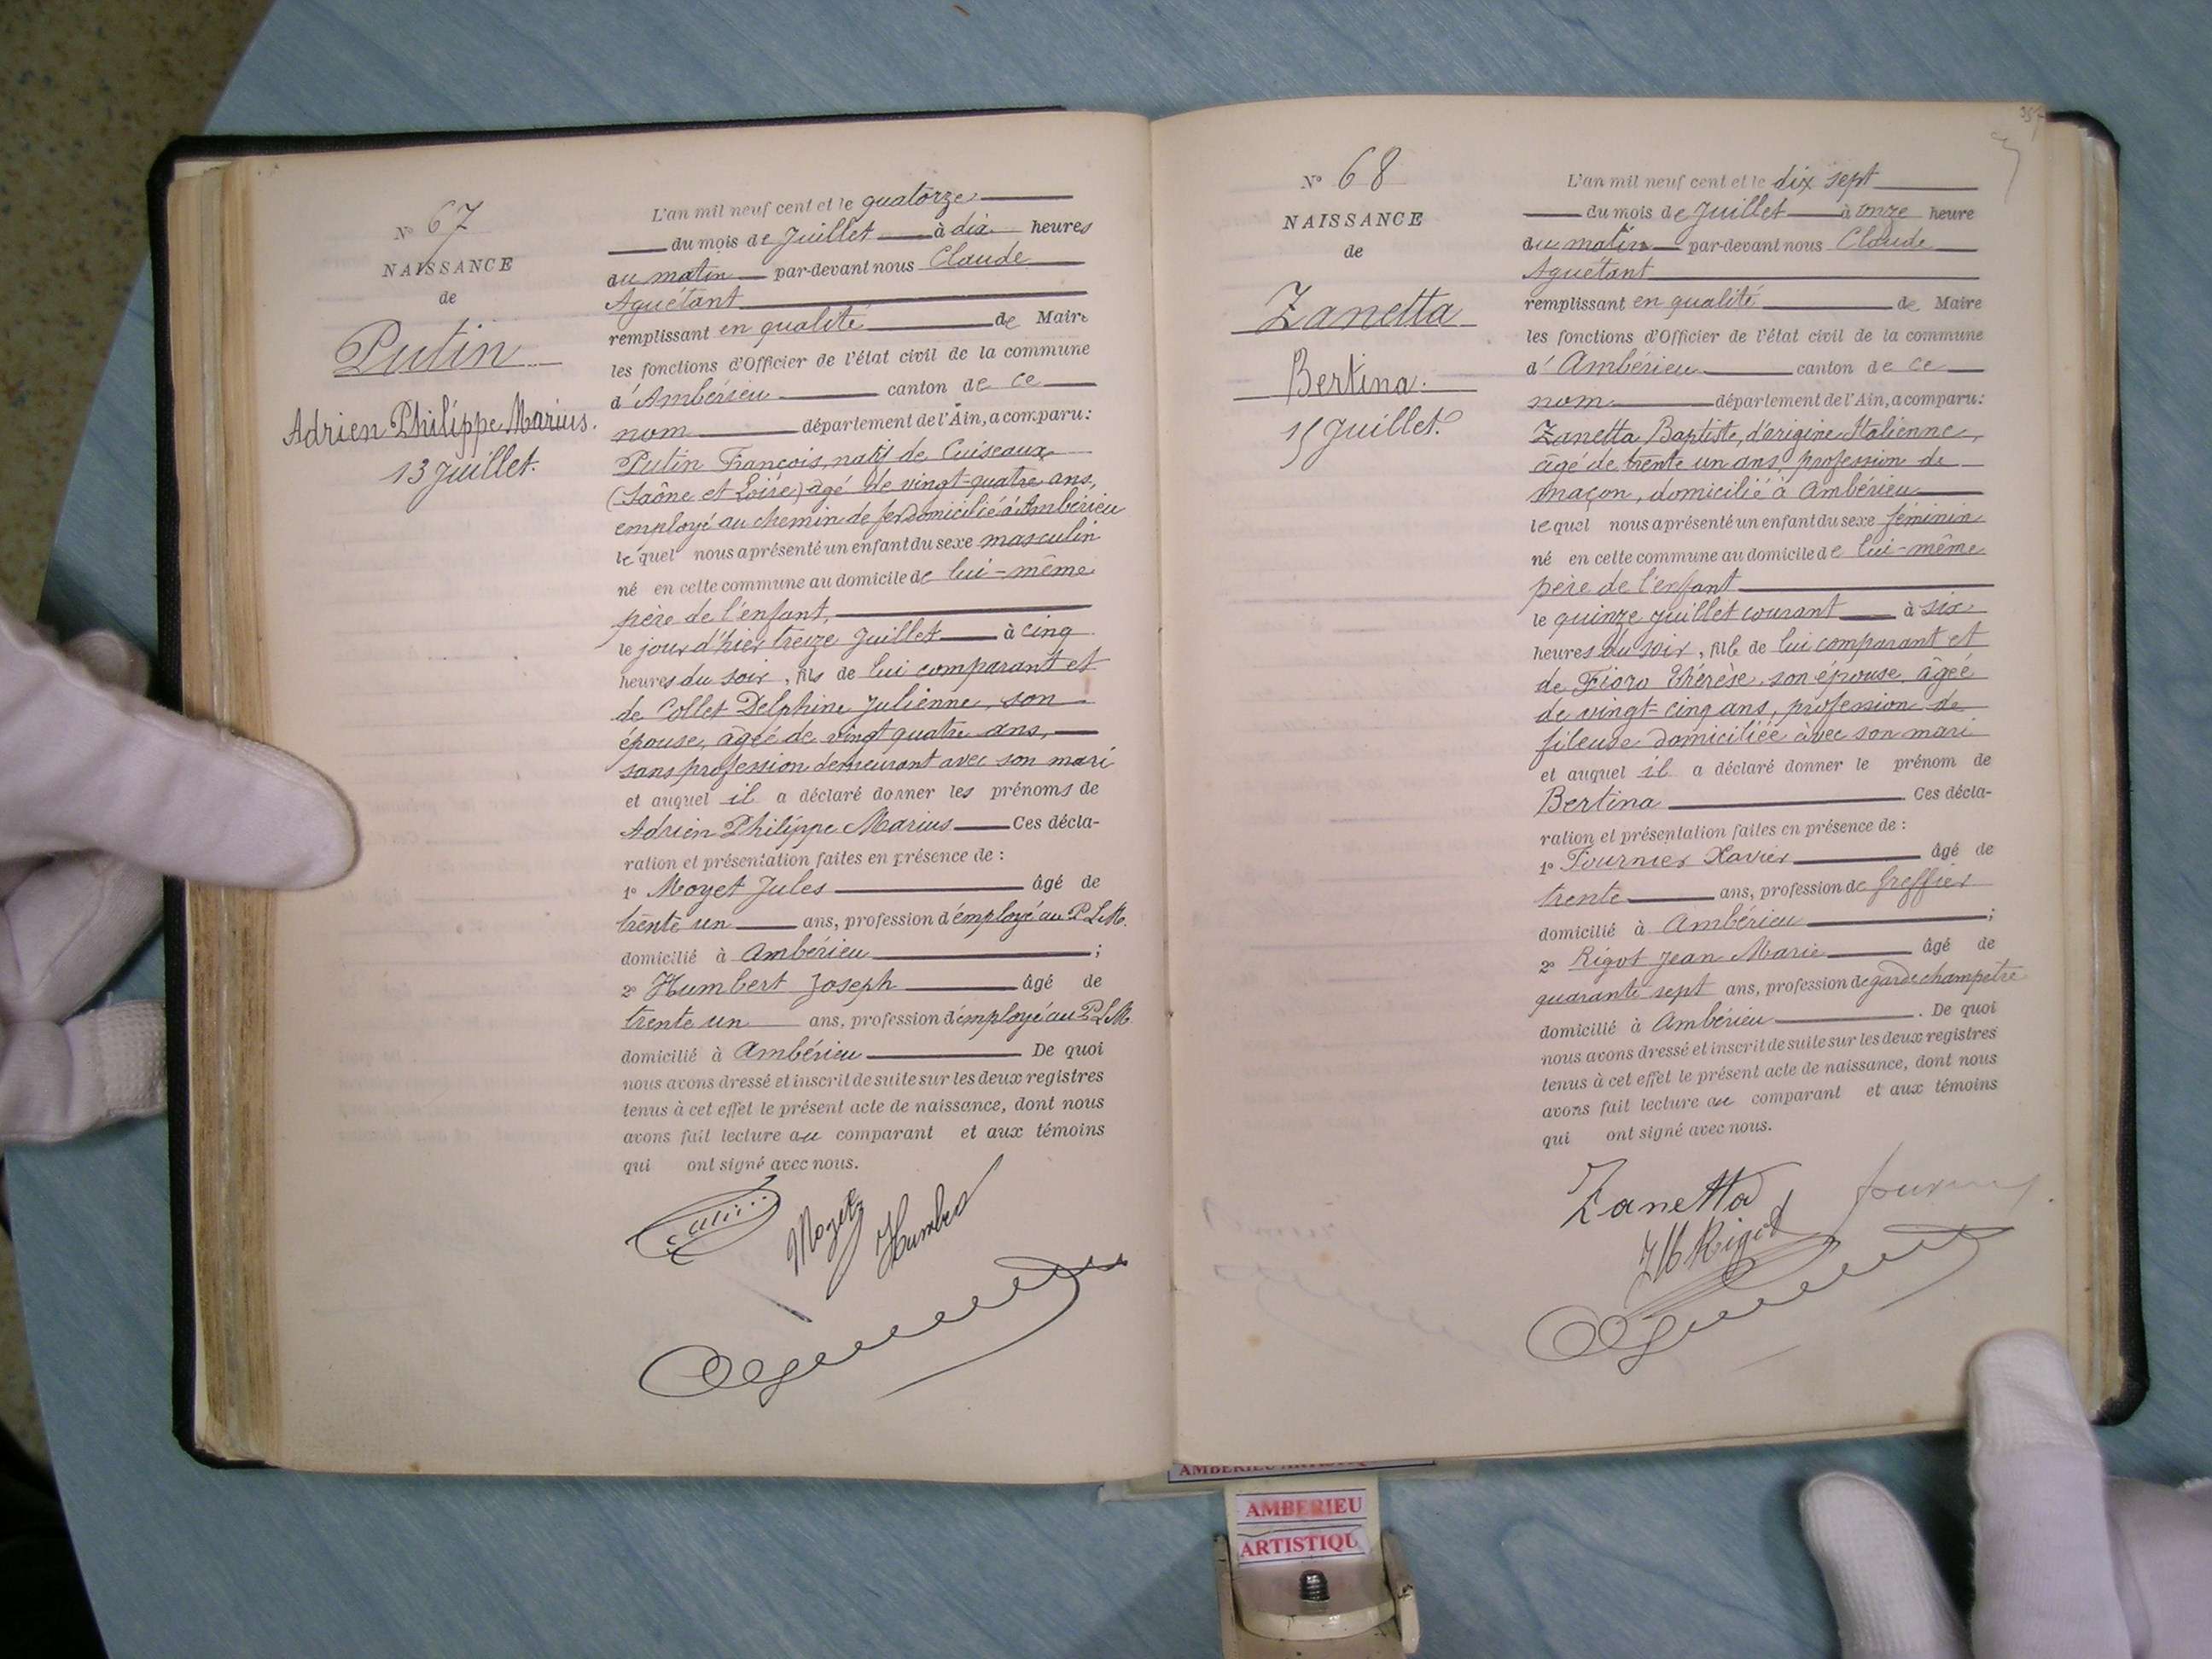 N° 67
NAISSANCE
de
Putin
Adrien Philippe Marius.
13 Juillet.
L'an mil neuf cent et le quatorze
du mois de Juillet à dix heures
du matin par-devant nous Claude
Aguétant
remplissant en qualité de Maire
les fonctions d'Officier de l'état civil de la commune
d'Ambérieu canton de ce
nom département de l'Ain, a comparu:
Putin François, natif de Cuiseaux
(Saône et Loire) âgé de vingt-quatre ans,
employé au chemin de fer domicilié à Ambérieu
lequel nous a présenté un enfant du sexe masculin
né en cette commune au domicile de lui-même
père de l'enfant,
le jour d'hier treize Juillet à cinq
heures du soir, fils de lui comparant et
de Collet Delphine Julienne, son
épouse, âgée de vingt quatre ans,
sans profession demeurant avec son mari
et auquel il a déclaré donner les prénoms de
Adrien Philippe Marius Ces décla-
ration et présentation faites en présence de :
1° Moyet Jules âgé de
trente un ans, profession d'employé au P.L.M.
domicilié à Ambérieu ;
2° Humbert Joseph âgé de
trente un ans, profession d'employé au P.L.M.
domicilié à Ambérieu De quoi
nous avons dressé et inscrit de suite sur les deux registres
tenus à cet effet le présent acte de naissance, dont nous
avons fait lecture au comparant et aux témoins
qui ont signé avec nous.
Moyet Humbert
N° 68
NAISSANCE
de
Zanetta
Bertina.
15 Juillet.
L'an mil neuf cent et le dix sept
du mois de Juillet à onze heure
du matin par-devant nous Claude
Aguétant
remplissant en qualité de Maire
les fonctions d'Officier de l'état civil de la commune
d'Ambérieu canton de ce
nom département de l'Ain, a comparu:
Zanetta Baptiste, d'origine Italienne,
âgé de trente un ans, profession de
maçon, domicilié à Ambérieu
lequel nous a présenté un enfant du sexe féminin
né en cette commune au domicile de lui-même
père de l'enfant
le quinze juillet courant à six
heures du soir, fille de lui comparant et
de Fioro Thérèse son épouse, âgée
de vingt-cinq ans, profession de
fileuse domiciliée avec son mari
et auquel il a déclaré donner le prénom de
Bertina Ces décla-
ration et présentation faites en présence de :
1° Fournier Xavier âgé de
trente ans, profession de Greffier
domicilié à Ambérieu ;
2° Rigot Jean Marie âgé de
quarante sept ans, profession de garde champêtre
domicilié à Ambérieu . De quoi
nous avons dressé et inscrit de suite sur les deux registres
tenus à cet effet le présent acte de naissance, dont nous
avons fait lecture au comparant et aux témoins
qui ont signé avec nous.
Zanetta
JM Rigot
AMBERIEU
ARTISTIQU